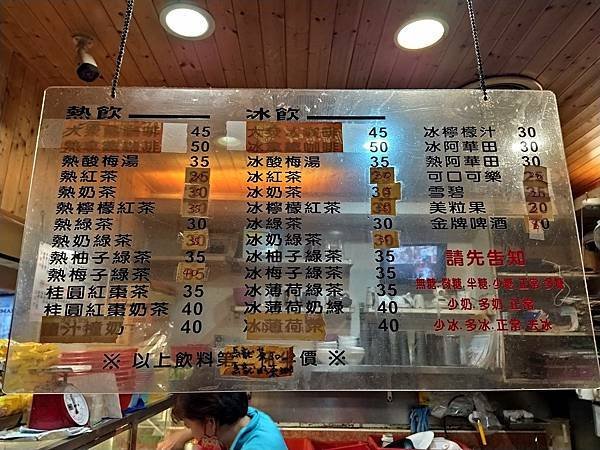 熱飲
45
50
熱酸梅湯 35
熱紅茶 25
熱奶茶 30
熱檸檬紅茶 30
熱綠茶 30
熱奶綠茶 30
熱柚子綠茶 35
熱梅子綠茶 35
桂圓紅棗茶 35
桂圓紅棗奶茶 40
40
冰飲
45
50
冰酸梅湯 35
冰紅茶
冰奶茶 30
冰檸檬紅茶
冰綠茶 30
冰奶綠茶 30
冰柚子綠茶 35
冰梅子綠茶 35
冰薄荷綠茶 35
冰薄荷奶綠 40
冰薄荷茶 40
冰檸檬汁 30
冰阿華田 30
熱阿華田 35
可口可樂 25
雪碧 25
美粒果 20
金牌啤酒
請先告知
無糖.微糖.半糖.少糖.正常.多糖
少奶.多奶.正常
少冰.多冰.正常.去冰
※ 以上飲料 價 ※